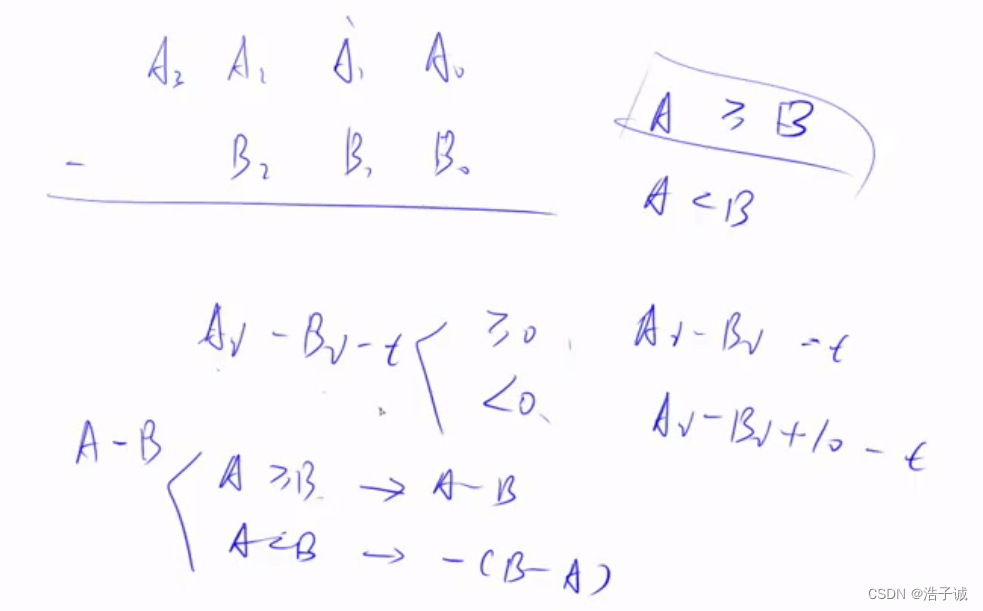 A₃ A₂ A₁ A₀
- B₂ B₁ B₀
A ≥ B
A < B
Aᵢ - Bᵢ - t ≥ 0 Aᵢ - Bᵢ - t
< 0 Aᵢ - Bᵢ + 10 - t
A - B
A ≥ B → A - B
A < B → -(B - A)
CSDN @浩子诚